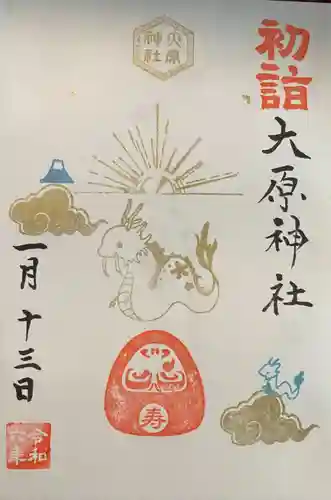 初詣
大原神社
大原
神社
寿
一月十三日
令和
六年